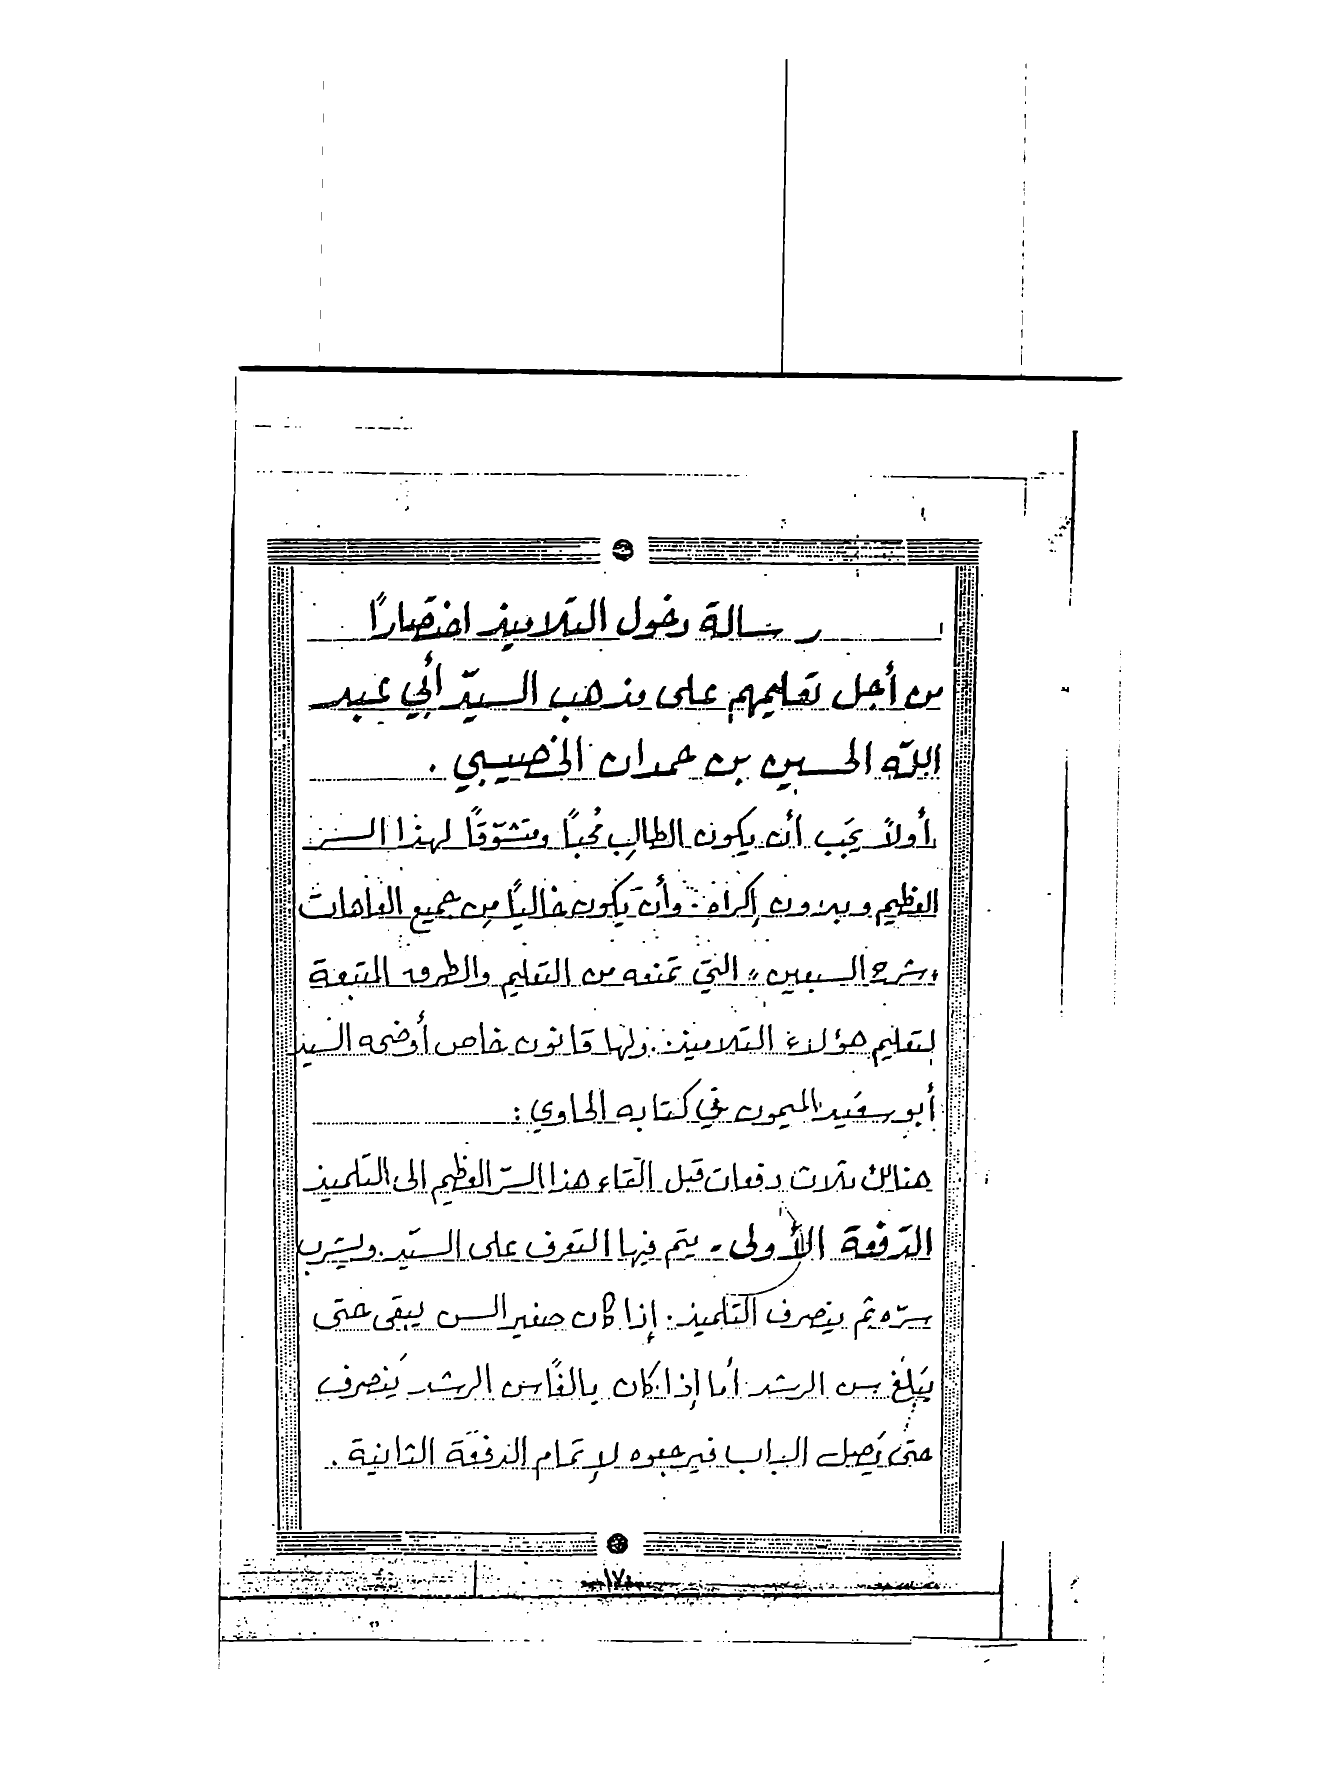 رسالة دخول التلاميذ اختصارًا
من أجل تعليمهم على مذهب السيّد أبي عبد
الله الحسين بن حمدان الخصيبي .
أولاً يَجب أن يكون الطالب مُحبًا ومتشوّقًا لهذا السر
العظيم وبدون إكراه . وأن يكون خاليًا من جميع العاهات
«شرح السبعين» التي تمنعه من التعليم والطرق المتبعة
لتعليم هؤلاء التلاميذ . ولها قانون خاص أوضحه السيد
أبو سعيد الميمون في كتابه الحاوي :
هنالك ثلاث دفعات قبل القاء هذا السرّ العظيم الى التلميذ
الدّفعة الأولى - يتم فيها التعرف على السيّد . ويشرب
سرّه ثم ينصرف التلميذ . إذا كان صغير السن يبقى حتى
يَبلغ سن الرشد أما إذا كان بالغًا سن الرشد يَنصرف
حتى يَصل الباب فيرجعوه لإتمام الدفعَة الثانية .
١٧